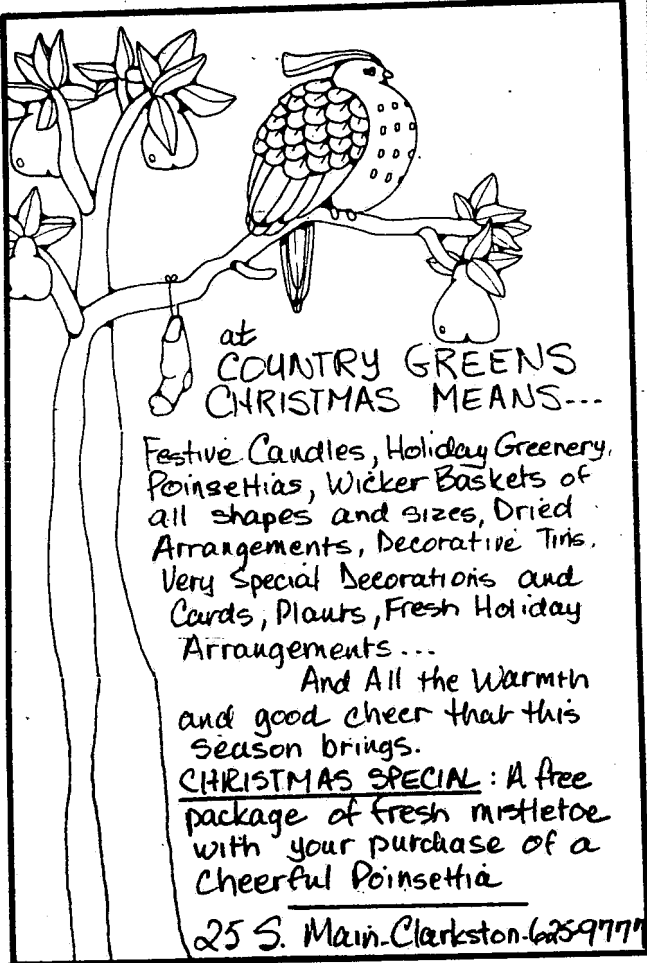 at
COUNTRY GREENS
CHRISTMAS MEANS---
Festive Candles, Holiday Greenery,
Poinsettias, Wicker Baskets of
all shapes and sizes, Dried
Arrangements, Decorative Tins,
Very Special Decorations and
Cards, Plants, Fresh Holiday
Arrangements...
And All the Warmth
and good cheer that this
season brings.
CHRISTMAS SPECIAL: A free
package of fresh mistletoe
with your purchase of a
Cheerful Poinsettia
25 S. Main-Clarkston-625-9777